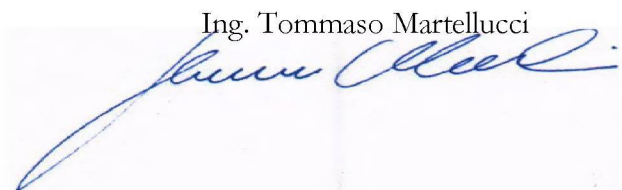 Ing. Tommaso Martellucci